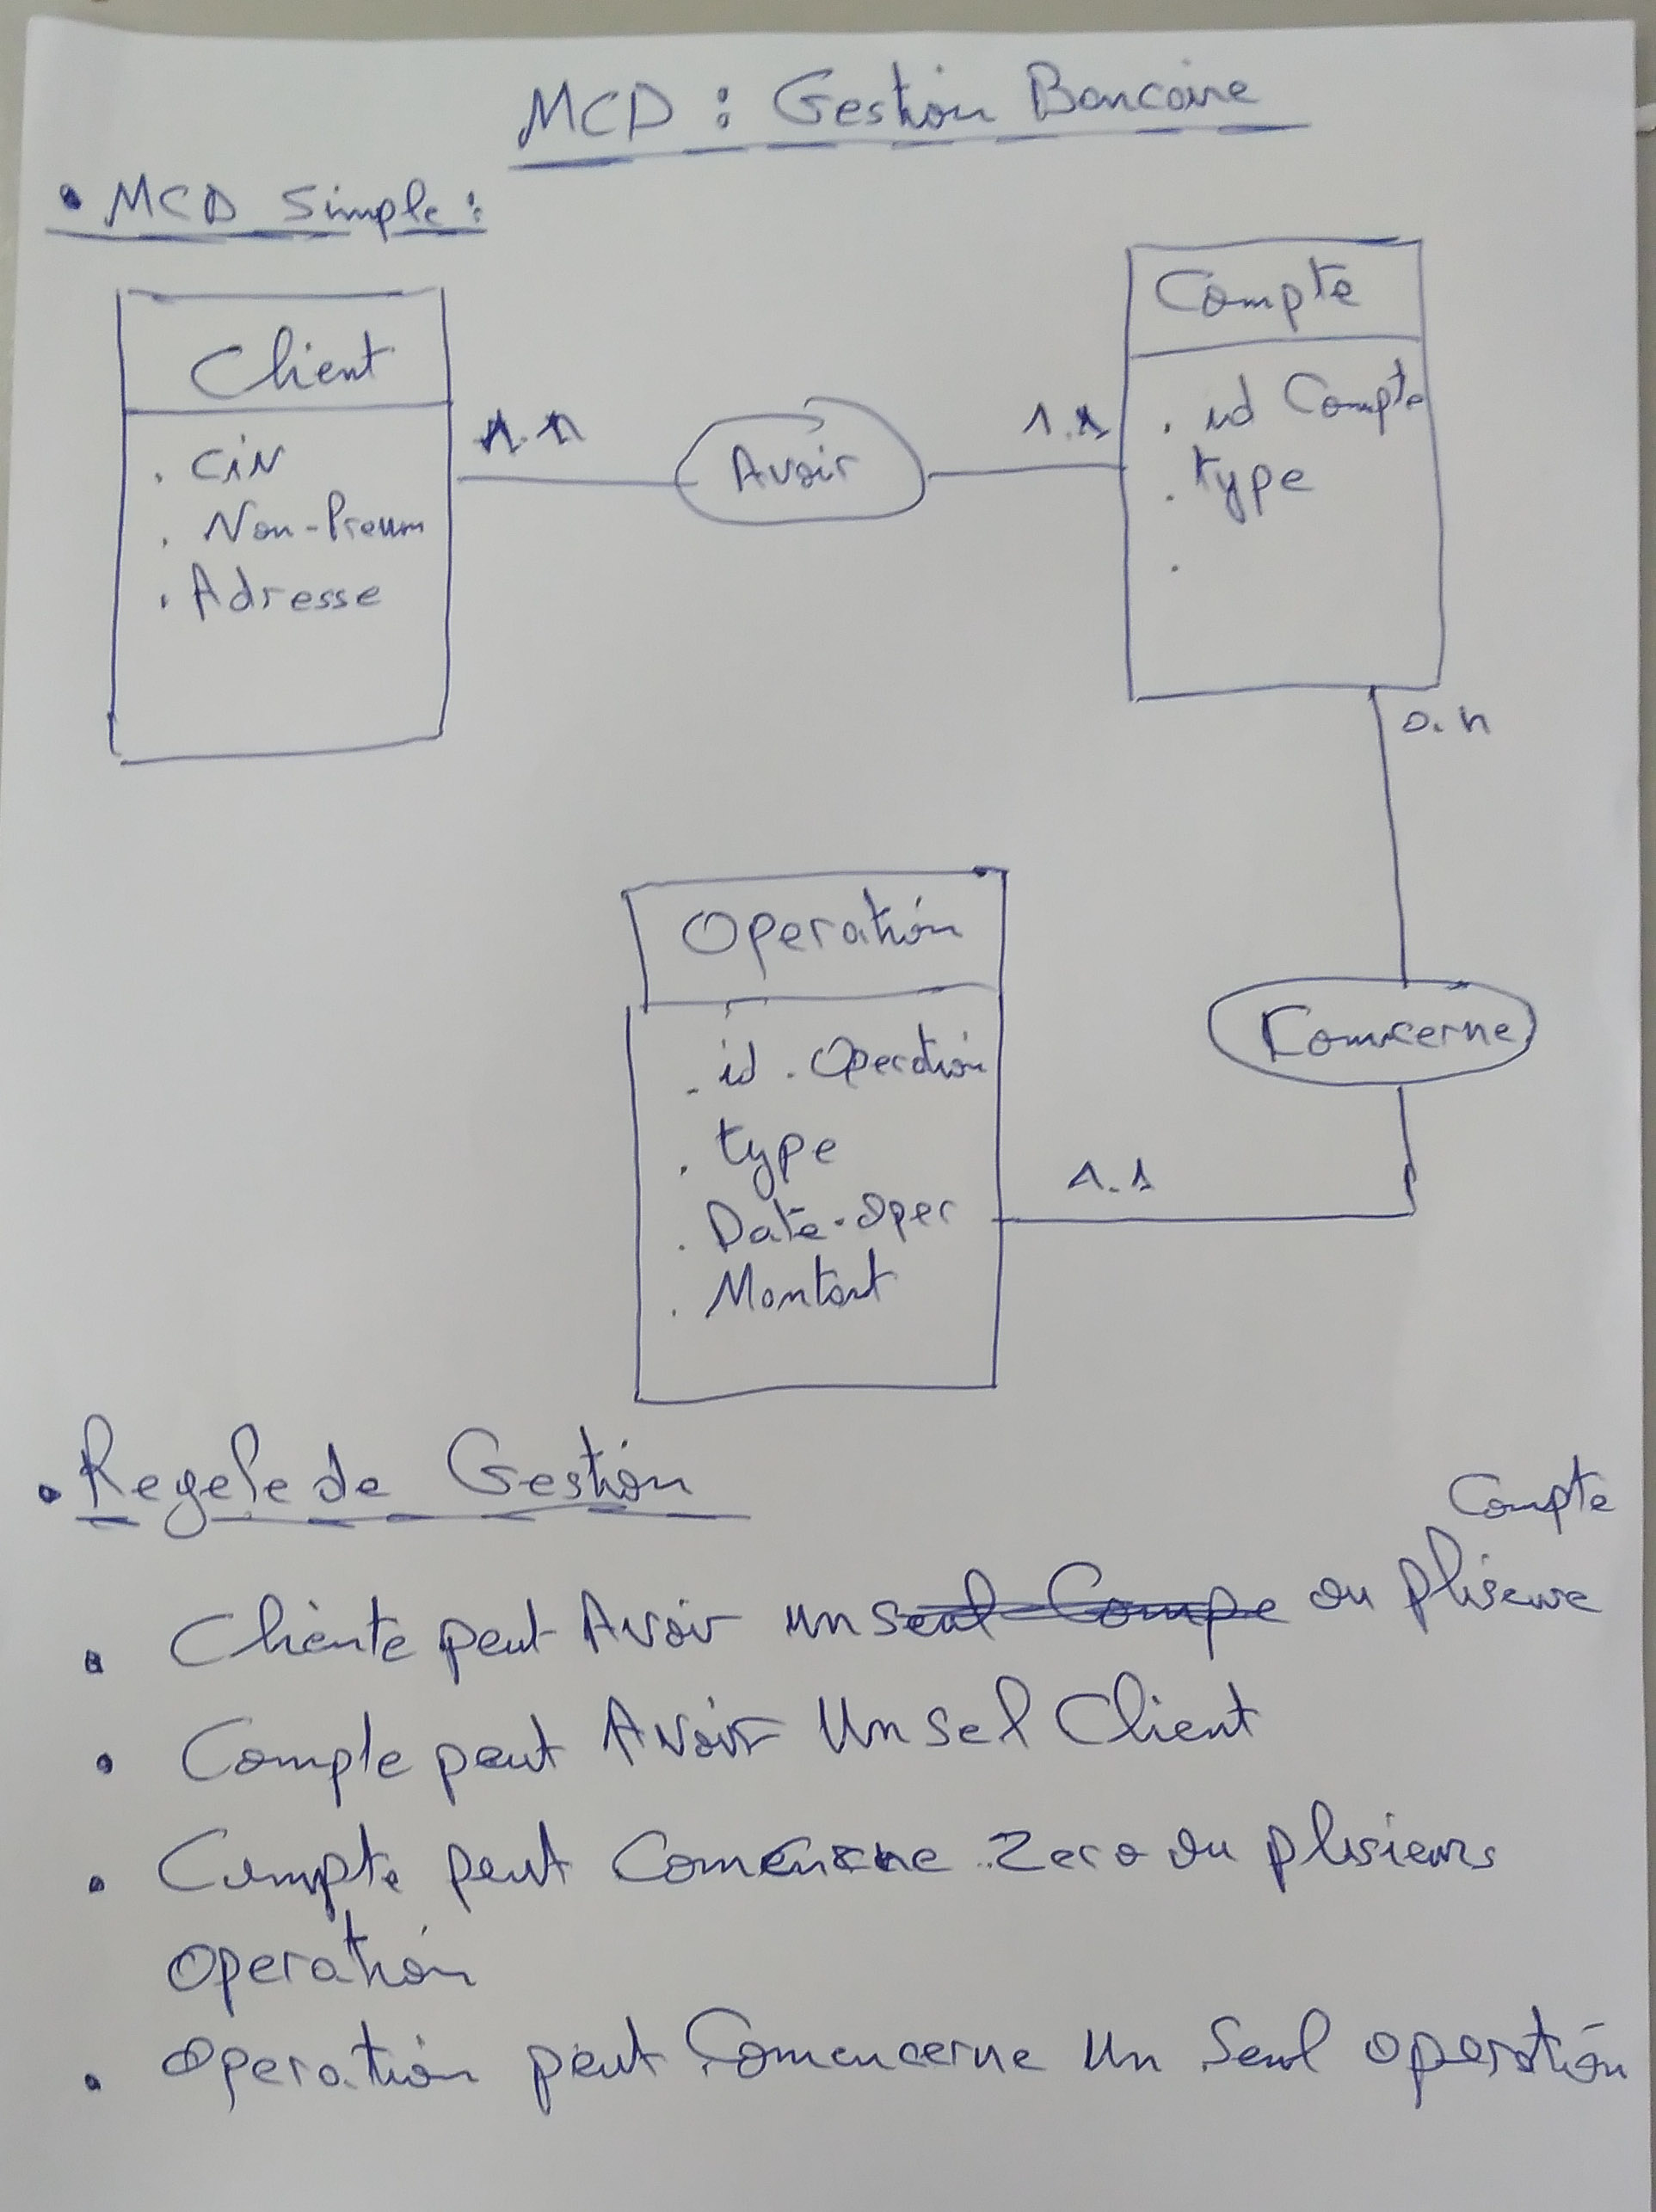 MCD : Gestion Bancaire
• MCD Simple :
Client
. CiN
. Nom-Prenom
. Adresse
1.n
Avoir
1.1
Compte
. id Compte
. type
.
0.n
Concerne
1.1
Operation
. id . Operation
. type
. Date-oper
. Montant
• Regele de Gestion
Compte
• Cliente peut Avoir un seul Compe ou pliseure
• Comple peut Avoir Un sel Client
• Compte peut Zero ou plusieurs
operation
• operation peut Comencerne Un Seul operation